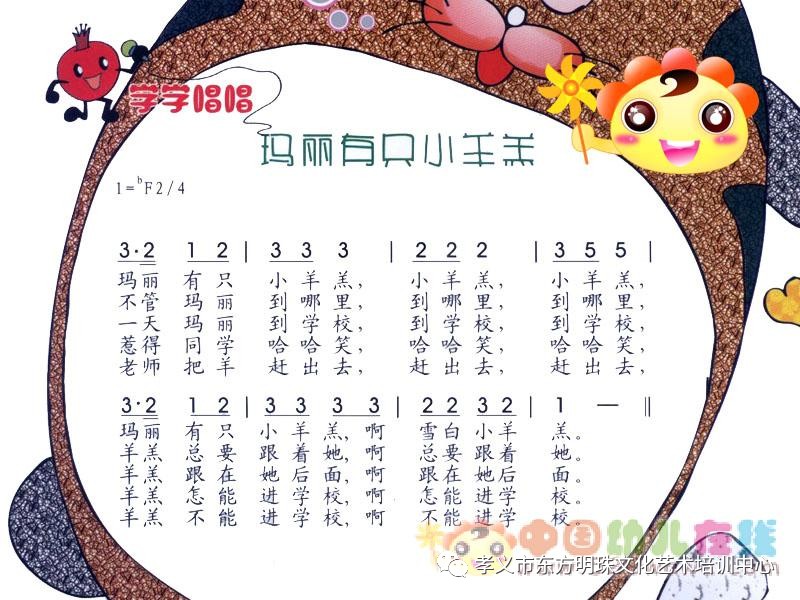 学学唱唱
玛丽有只小羊羔
1=ᵇF2/4
3·2 1 2 | 3 3 3 | 2 2 2 | 3 5 5 |
玛丽 有只 小羊羔, 小羊羔, 小羊羔,
不管 玛丽 到哪里, 到哪里, 到哪里,
一天 玛丽 到学校, 到学校, 到学校,
惹得 同学 哈哈笑, 哈哈笑, 哈哈笑,
老师 把羊 赶出去, 赶出去, 赶出去,
3·2 1 2 | 3 3 3 3 | 2 2 3 2 | 1 — ‖
玛丽 有只 小羊羔,啊 雪白小羊 羔。
羊羔 总要 跟着她,啊 总要跟着 她。
羊羔 跟在 她后面,啊 跟在她后 面。
羊羔 怎能 进学校,啊 怎能进学 校。
羊羔 不能 进学校,啊 不能进学 校。
中国幼儿在线
孝义市东方明珠文化艺术培训中心